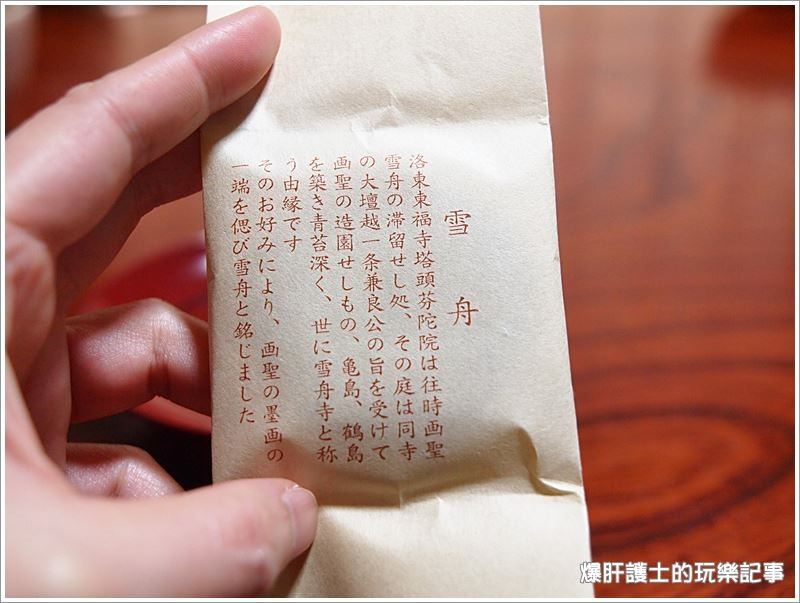 雪舟
洛東東福寺塔頭芬陀院は往時画聖
雪舟の滞留せし処、その庭は同寺
の大壇越一条兼良公の旨を受けて
画聖の造園せしもの、亀島、鶴島
を築き青苔深く、世に雪舟寺と称
う由縁です
そのお好みにより、画聖の墨画の
一端を偲び雪舟と銘じました
爆肝護士的玩樂記事